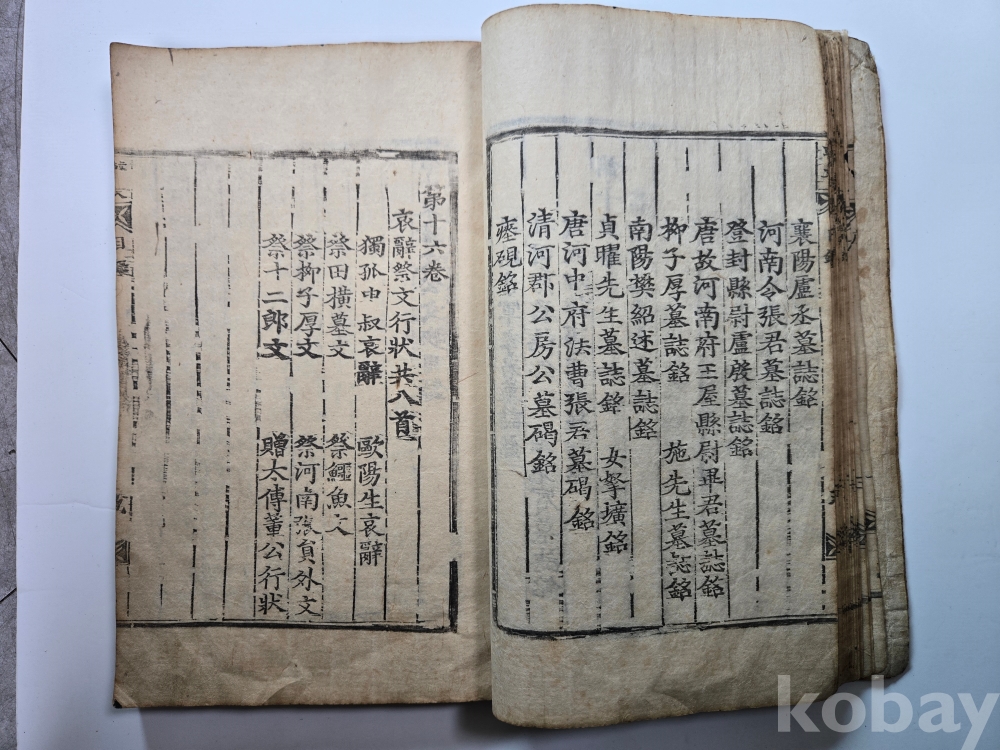 襄陽盧丞墓誌銘
河南令張君墓誌銘
登封縣尉盧殷墓誌銘
唐故河南府王屋縣尉畢君墓誌銘
柳子厚墓誌銘 施先生墓誌銘
南陽樊紹述墓誌銘
貞曜先生墓誌銘 女挐壙銘
唐河中府法曹張君墓碣銘
清河郡公房公墓碣銘
瘞硯銘
第十六卷
哀辭祭文行狀共八首
獨孤申叔哀辭 歐陽生哀辭
祭田橫墓文 祭鱷魚文
祭柳子厚文 祭河南張員外文
祭十二郎文 贈太傅董公行狀
kobay